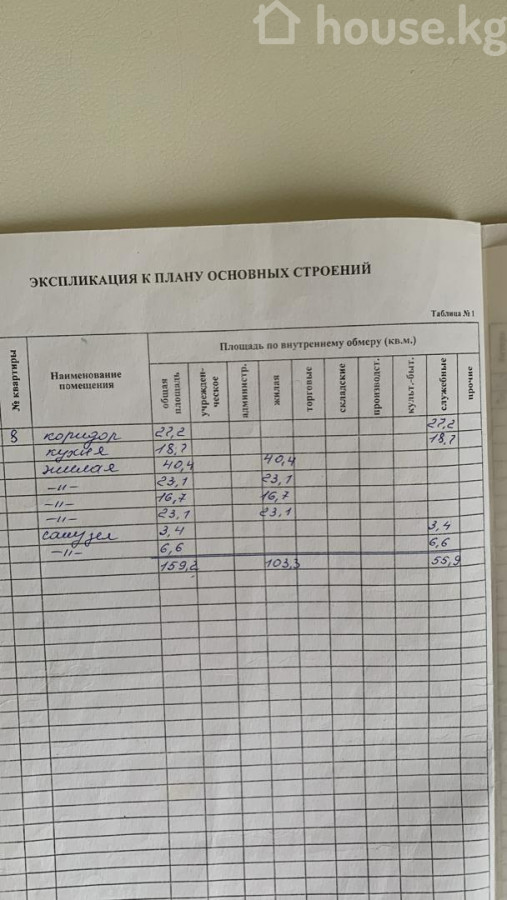 house.kg
ЭКСПЛИКАЦИЯ К ПЛАНУ ОСНОВНЫХ СТРОЕНИЙ
Таблица № 1
№ квартиры
Наименование помещения
Площадь по внутреннему обмеру (кв.м.)
общая площаль
учрежден-ческое
администр.
жилая
торговые
складские
производст.
культ.-быт.
служебные
прочие
8 коридор 27,2 27,2
кухня 18,7 18,7
жилая 40,4 40,4
-"- 23,1 23,1
-"- 16,7 16,7
-"- 23,1 23,1
санузел 3,4 3,4
-"- 6,6 6,6
159,2 103,3 55,9